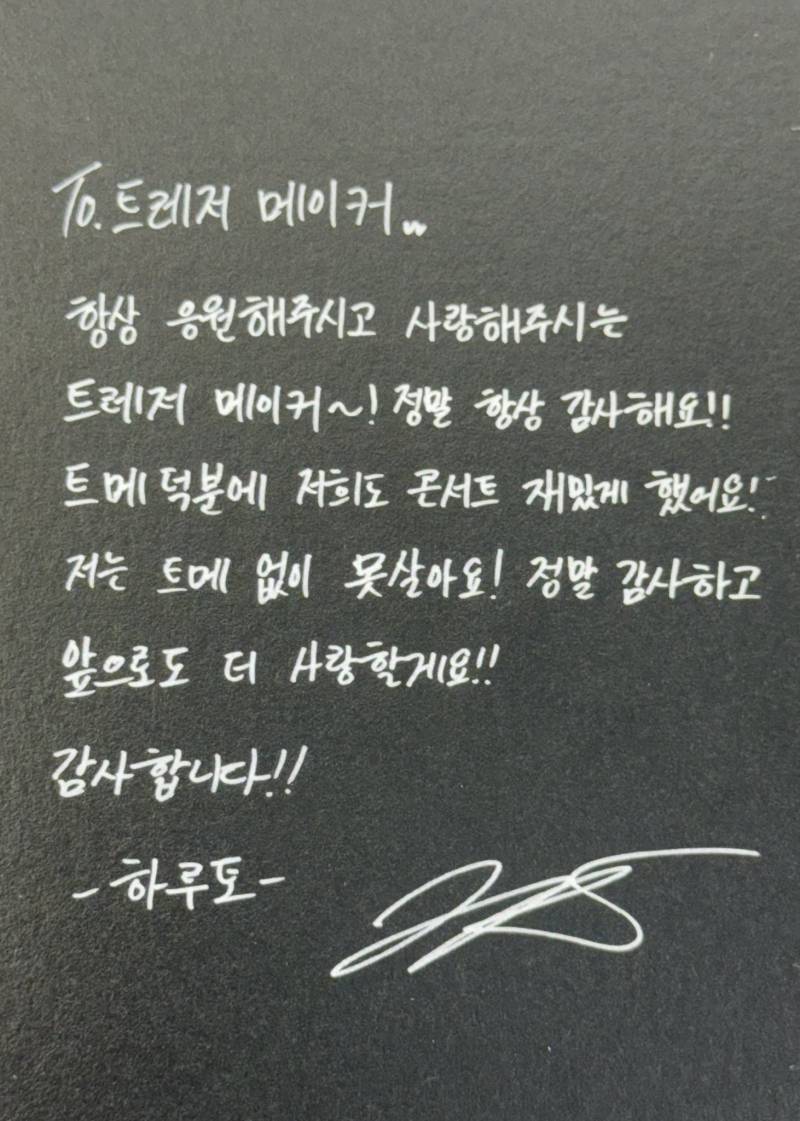 To. 트레저 메이커..
항상 응원해주시고 사랑해주시는
트레저 메이커~! 정말 항상 감사해요!!
트메 덕분에 저희도 콘서트 재밌게 했어요!
저는 트메 없이 못살아요! 정말 감사하고
앞으로도 더 사랑할게요!!
감사합니다!!
-하루토-